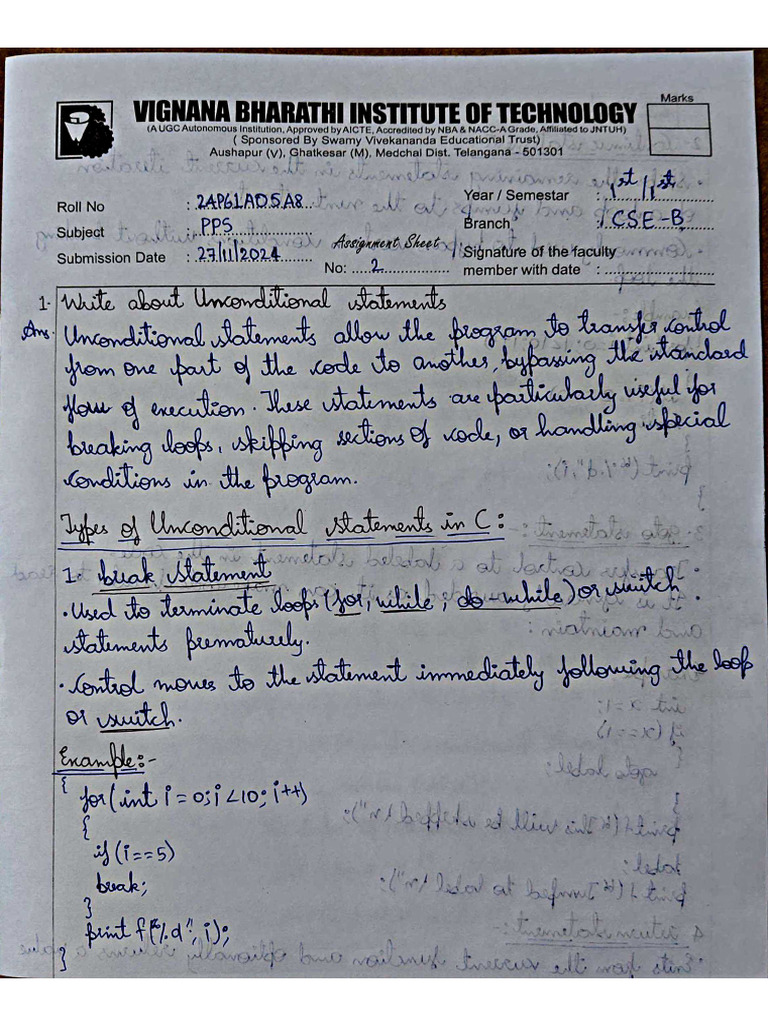 Marks
VIGNANA BHARATHI INSTITUTE OF TECHNOLOGY
(A UGC Autonomous Institution, Approved by AICTE, Accredited by NBA & NACC-A Grade, Affiliated to JNTUH)
( Sponsored By Swamy Vivekananda Educational Trust)
Aushapur (V), Ghatkesar (M), Medchal Dist. Telangana - 501301
Roll No : 24P61A05A8
Year / Semestar : 1st/1st
Subject : PPS
Branch : CSE-B
Assignment Sheet
Submission Date : 27/11/2024
No: 2
Signature of the faculty
member with date :
1. Write about Unconditional statements
Ans. Unconditional statements allow the program to transfer control
from one part of the code to another, bypassing the standard
flow of execution. These statements are particularly useful for
breaking loops, skipping sections of code, or handling special
conditions in the program.
Types of Unconditional statements in C:
1. break statement
• Used to terminate loops (for, while, do-while) or switch
statements prematurely.
• Control moves to the statement immediately following the loop
or switch.
Example:-
{ for(int i = 0; i <10; i++)
{
if(i==5)
break;
}
printf("%d", i);
}